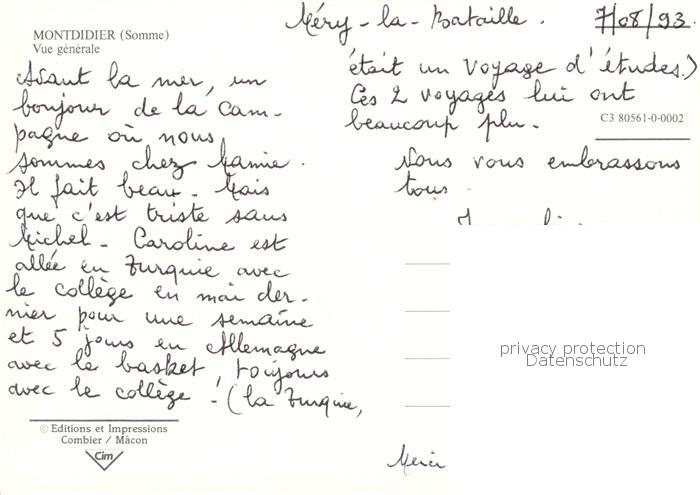 MONTDIDIER (Somme)
Vue générale
Méry-la-Bataille. 7/08/93
Avant la mer, un
bonjour de la cam-
pagne où nous
sommes chez Mamie.
Il fait beau. Mais
que c'est triste sans
Michel. Caroline est
allée en Turquie avec
le collège en mai der-
nier pour une semaine
et 5 jours en Allemagne
avec le basket, toujours
avec le collège ! (la Turquie,
était un voyage d'études.)
Ces 2 voyages lui ont
beaucoup plu.
C3 80561-0-0002
Nous vous embrassons
tous.
privacy protection
Datenschutz
Merci
© Editions et Impressions
Combier / Mâcon
Cim